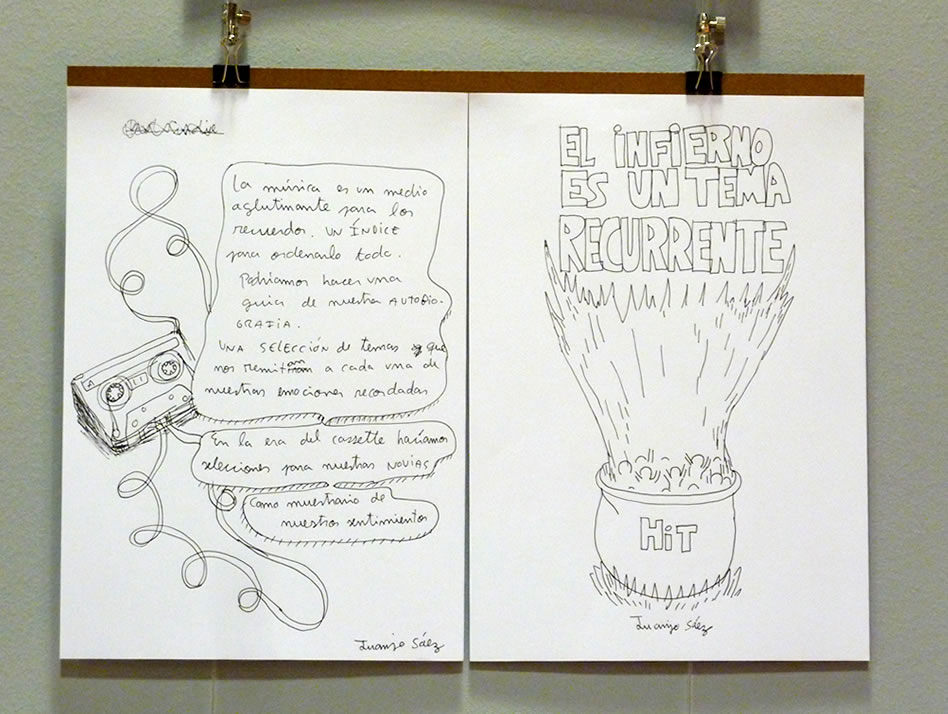 La música es un medio
aglutinante para los
recuerdos. UN ÍNDICE
para ordenarlo todo.
Podríamos hacer una
guia de nuestra AUTOBIO-
GRAFIA.
UNA SELECCIÓN de temas que
nos remitan a cada una de
nuestras emociones recordadas
En la era del cassette hacíamos
selecciones para nuestras NOVIAS
Como muestrario de
nuestros sentimientos
Juanjo Sáez
EL INFIERNO
ES UN TEMA
RECURRENTE
HiT
Juanjo Sáez